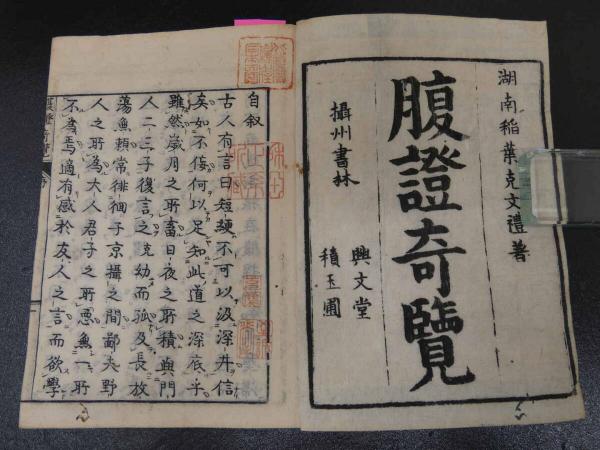 湖南稲葉克文禮著
腹證奇覽
攝州書林
興文堂
積玉圃
自叙
古人有言曰短綆不可以汲深井信
矣如不佞何以足知此道之深底乎
雖然歲月之所畜日夜之所積與門
人二三子復言之克幼而孤及長放
蕩無頼常徘徊于京攝之間鄙夫野
人之所為大人君子之所惡無一所
不為焉適有感於友人之言而欲學